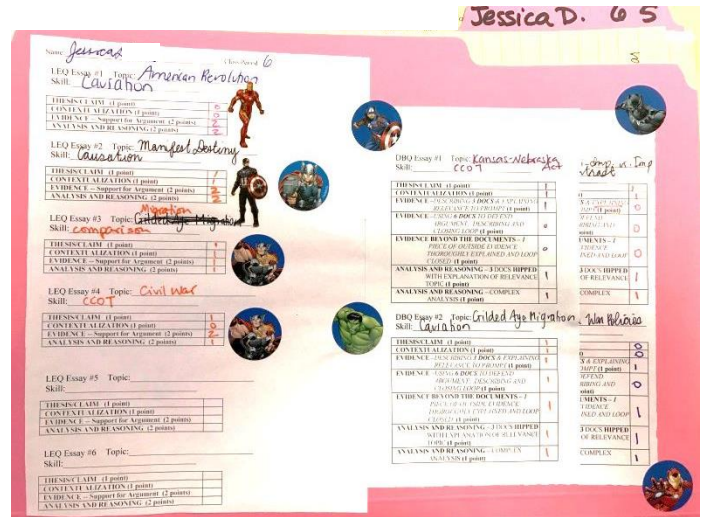 Jessica D. 6 5
Name: Jessica
Class/Period: 6
LEQ Essay #1 Topic: American Revolution
Skill: Causation
THESIS/CLAIM (1 point) 0
CONTEXTUALIZATION (1 point) 0
EVIDENCE – Support for Argument (2 points) 2
ANALYSIS AND REASONING (2 points) 2
LEQ Essay #2 Topic: Manifest Destiny
Skill: Causation
THESIS/CLAIM (1 point) 1
CONTEXTUALIZATION (1 point) 1
EVIDENCE – Support for Argument (2 points) 2
ANALYSIS AND REASONING (2 points) 2
Migration
LEQ Essay #3 Topic: Gilded Age Migration
Skill: comparison
THESIS/CLAIM (1 point) 1
CONTEXTUALIZATION (1 point) 1
EVIDENCE – Support for Argument (2 points)
ANALYSIS AND REASONING (2 points) 1
LEQ Essay #4 Topic: Civil War
Skill: CCOT
THESIS/CLAIM (1 point) 1
CONTEXTUALIZATION (1 point) 0
EVIDENCE – Support for Argument (2 points) 2
ANALYSIS AND REASONING (2 points) 1
LEQ Essay #5 Topic:
Skill:
THESIS/CLAIM (1 point)
CONTEXTUALIZATION (1 point)
EVIDENCE – Support for Argument (2 points)
ANALYSIS AND REASONING (2 points)
LEQ Essay #6 Topic:
Skill:
THESIS/CLAIM (1 point)
CONTEXTUALIZATION (1 point)
EVIDENCE – Support for Argument (2 points)
ANALYSIS AND REASONING (2 points)
DBQ Essay #1 Topic: Kansas-Nebraska
Skill: CCOT Act
THESIS/CLAIM (1 point) 1
CONTEXTUALIZATION (1 point) 1
EVIDENCE – DESCRIBING 3 DOCS & EXPLAINING
RELEVANCE TO PROMPT (1 point) 1
EVIDENCE – USING 6 DOCS TO DEFEND
ARGUMENT. DESCRIBING AND
CLOSING LOOP (1 point) 0
EVIDENCE BEYOND THE DOCUMENTS – 1
PIECE OF OUTSIDE EVIDENCE
THOROUGHLY EXPLAINED AND LOOP
CLOSED (1 point) 0
ANALYSIS AND REASONING – 3 DOCS HIPPED
WITH EXPLANATION OF RELEVANCE
TOPIC (1 point) 1
ANALYSIS AND REASONING – COMPLEX
ANALYSIS (1 point) 1
DBQ Essay #2 Topic: Gilded Age Migration
Skill: Causation
THESIS/CLAIM (1 point) 1
CONTEXTUALIZATION (1 point) 1
EVIDENCE – DESCRIBING 3 DOCS & EXPLAINING
RELEVANCE TO PROMPT (1 point) 1
EVIDENCE – USING 6 DOCS TO DEFEND
ARGUMENT. DESCRIBING AND
CLOSING LOOP (1 point) 1
EVIDENCE BEYOND THE DOCUMENTS – 1
PIECE OF OUTSIDE EVIDENCE
THOROUGHLY EXPLAINED AND LOOP
CLOSED (1 point) 1
ANALYSIS AND REASONING – 3 DOCS HIPPED
WITH EXPLANATION OF RELEVANCE
TOPIC (1 point) 1
ANALYSIS AND REASONING – COMPLEX
ANALYSIS (1 point) 1
Imp. vs. Imp
1
S & EXPLAINING
DEFEND
RIBING AND 0
UMENTS – 1
VIDENCE
INED AND LOOP 0
3 DOCS HIPPED
OF RELEVANCE 1
COMPLEX 1
War Policies
0
0
S & EXPLAINING
MPT (1 point) 1
DEFEND
RIBING AND 0
UMENTS – 1
VIDENCE
INED AND LOOP 1
3 DOCS HIPPED
OF RELEVANCE 1
COMPLEX 1